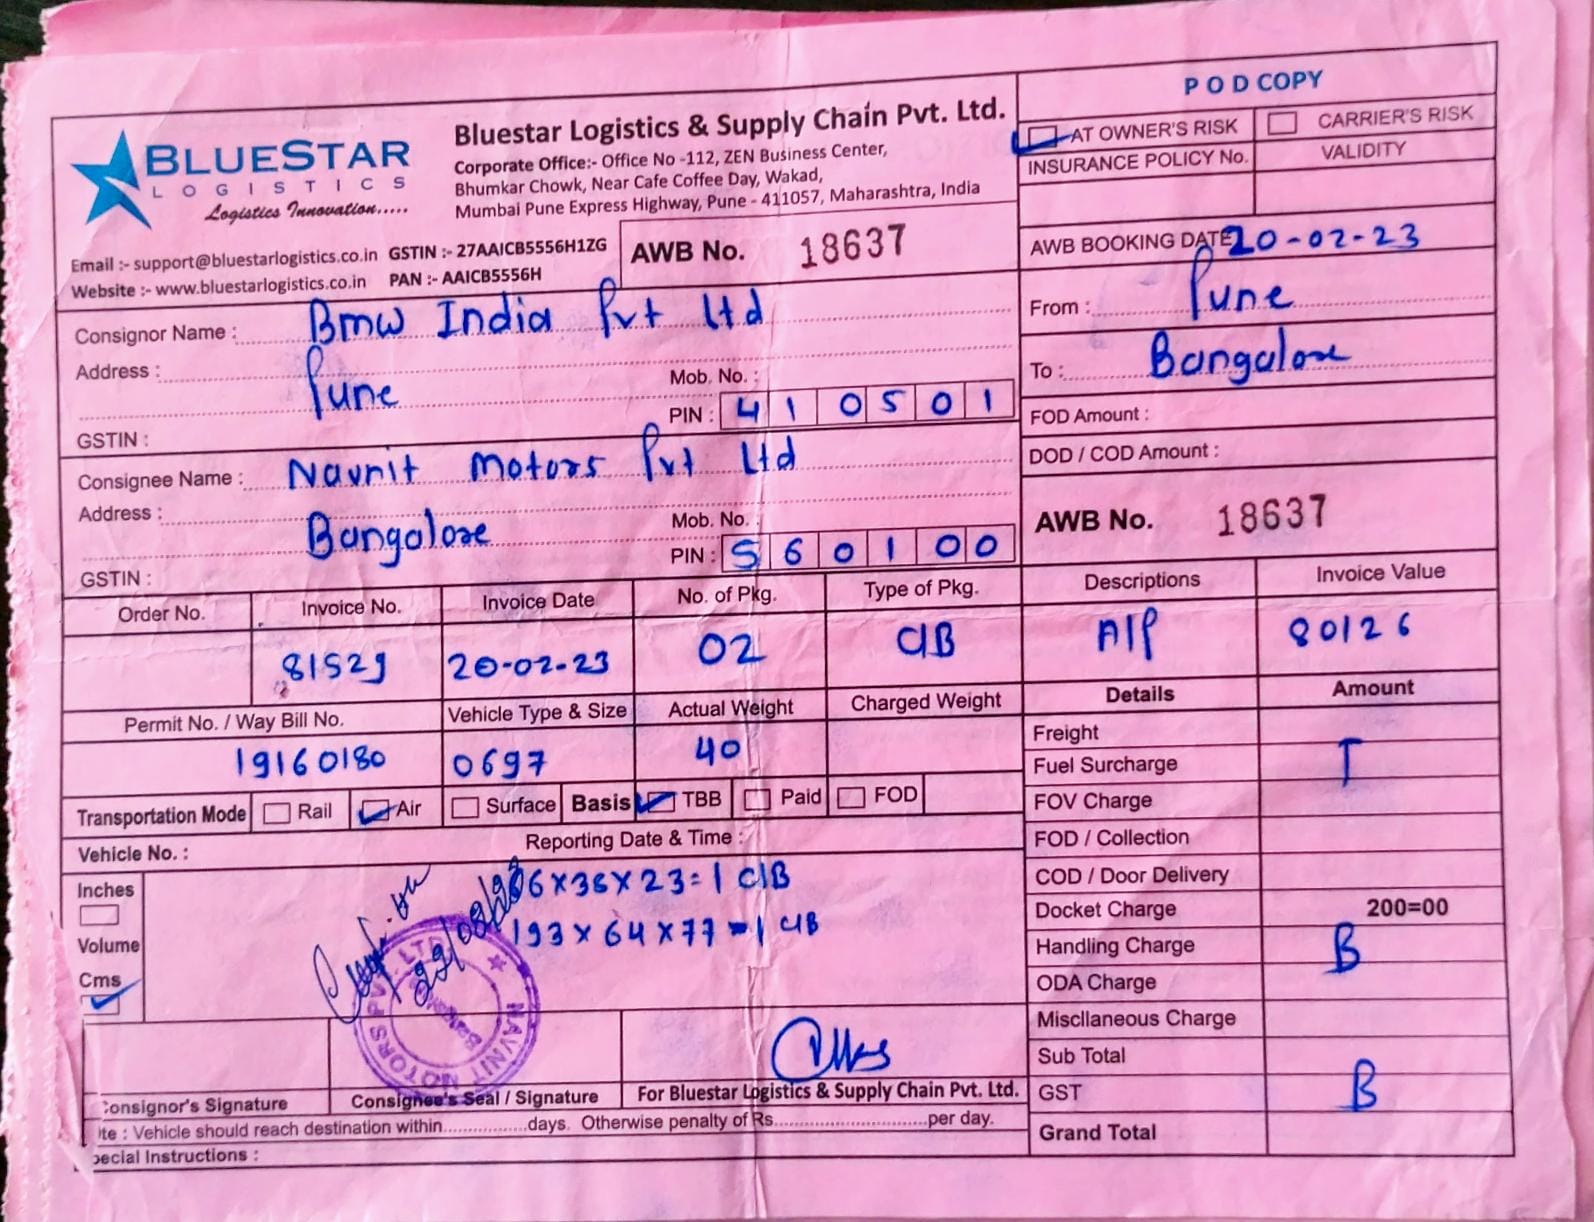 P O D COPY
BLUESTAR
LOGISTICS
Logistics Innovation.....
Bluestar Logistics & Supply Chain Pvt. Ltd.
Corporate Office:- Office No -112, ZEN Business Center,
Bhumkar Chowk, Near Cafe Coffee Day, Wakad,
Mumbai Pune Express Highway, Pune - 411057, Maharashtra, India
AT OWNER'S RISK CARRIER'S RISK
INSURANCE POLICY No. VALIDITY
Email :- support@bluestarlogistics.co.in GSTIN :- 27AAICB5556H1ZG
Website :- www.bluestarlogistics.co.in PAN :- AAICB5556H
AWB No. 18637
AWB BOOKING DATE 20-02-23
Consignor Name : Bmw India Pvt Ltd
Address : Pune
Mob. No. :
PIN : 410501
GSTIN :
From : Pune
To : Bangalore
FOD Amount :
DOD / COD Amount :
Consignee Name : Navnit Motors Pvt Ltd
Address : Bangalore
Mob. No. :
PIN : 560100
GSTIN :
AWB No. 18637
Order No. Invoice No. Invoice Date No. of Pkg. Type of Pkg. Descriptions Invoice Value
81529 20-02-23 02 C/B A/P 80126
Permit No. / Way Bill No. Vehicle Type & Size Actual Weight Charged Weight Details Amount
19160180 0697 40
Transportation Mode Rail Air Surface Basis TBB Paid FOD
Vehicle No. : Reporting Date & Time :
Inches
Volume
Cms
x 23 = 1 C/B
193 x 64 x 77 = 1 C/B
22/02/23
NAVNIT MOTORS PVT. LTD.
Freight
Fuel Surcharge T
FOV Charge
FOD / Collection
COD / Door Delivery
Docket Charge 200=00
Handling Charge B
ODA Charge
Miscllaneous Charge
Sub Total
GST B
Grand Total
Consignor's Signature Consignee's Seal / Signature For Bluestar Logistics & Supply Chain Pvt. Ltd.
te : Vehicle should reach destination within................days. Otherwise penalty of Rs............................per day.
pecial Instructions :